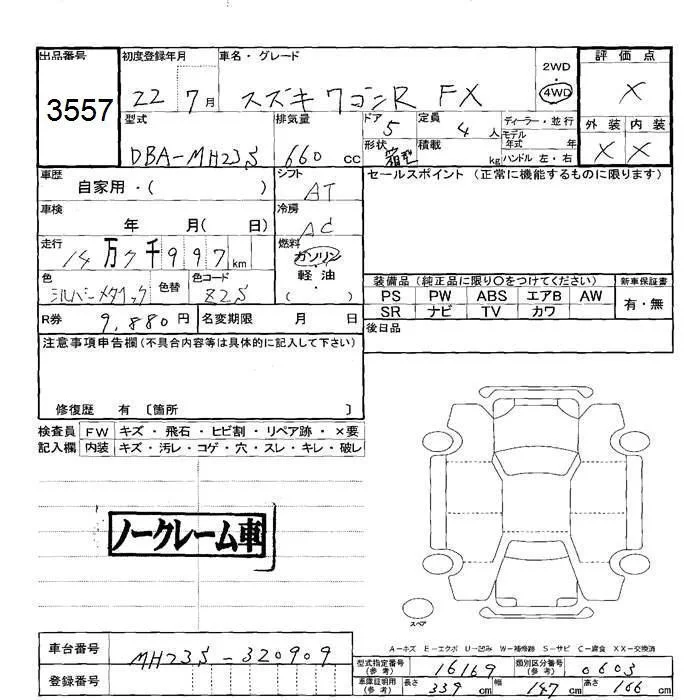 出品番号
3557
初度登録年月
22 7月
車名・グレード
スズキ ワゴンR FX
2WD
4WD
評価点
X
外装 内装
X X
型式
DBA-MH23S
排気量
660 cc
ドア
5
定員
4 人
形状
箱型
積載
kg
ディーラー・並行
モデル
年式 年
ハンドル 左・右
車歴
自家用・( )
シフト
AT
セールスポイント (正常に機能するものに限ります)
車検
年 月( 日)
冷房
AC
走行
14万7千997km
燃料
ガソリン
軽油
( )
色
シルバーメタリック
色替
色コード
Z2S
装備品 (純正品に限り〇をつけてください)
新車保証書
PS PW ABS エアB AW
有・無
SR ナビ TV カワ
R券
9,880円
名変期限 月 日
後日品
注意事項申告欄 (不具合内容等は具体的に記入して下さい)
修復歴 有 〔箇所 〕
検査員 FW キズ・飛石・ヒビ割・リペア跡・×要
記入欄 内装 キズ・汚レ・コゲ・穴・スレ・キレ・破レ
ノークレーム車
スペア
A-キズ E-エクボ U-凹み W-補修跡 S-サビ C-腐食 XX-交換済
車台番号
MH23S-320909
登録番号
型式指定番号
(参考)
16169
類別区分番号
(参考)
0603
車庫証明用
(参考)
長さ 339 cm
幅 147 cm
高さ 166 cm